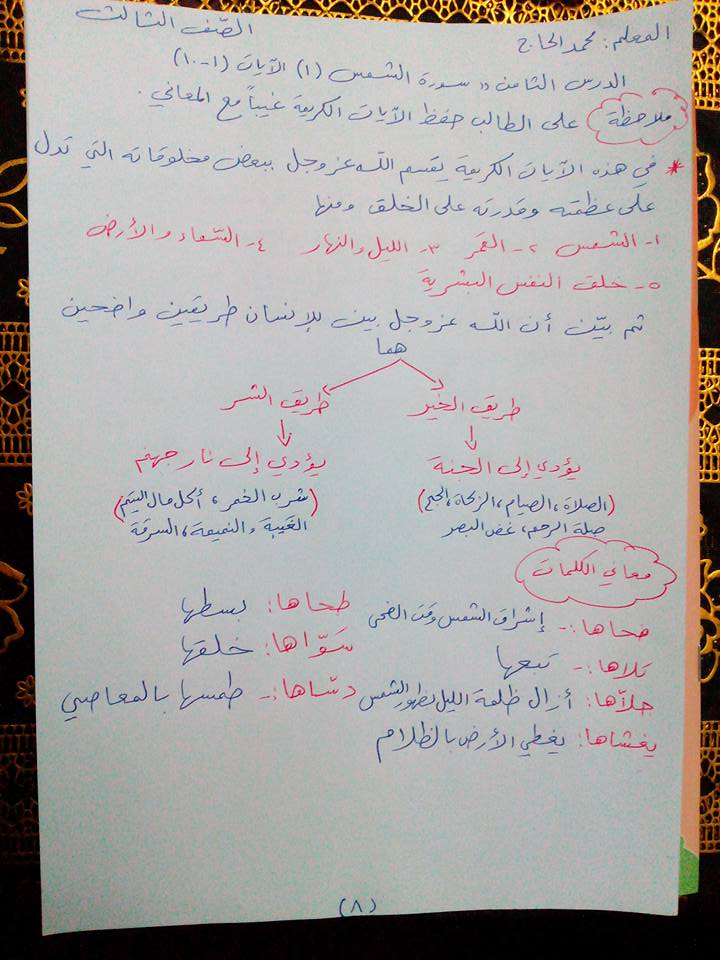 المعلم: محمد الحاج الصّف الثالث
الدرس الثامن " سورة الشمس (١) الآيات (١-١٠)
ملاحظة على الطالب حفظ الآيات الكريمة غيباً مع المعاني.
* في هذه الآيات الكريمة يقسم الله عز وجل ببعض مخلوقاته التي تدل
على عظمته وقدرته على الخلق ومنها
١- الشمس ٢- القمر ٣- الليل والنهار ٤- السّماء والأرض
٥- خلق النفس البشرية
ثم بيّن أن الله عز وجل بين للإنسان طريقين واضحين
هما
طريق الخير طريق الشر
يؤدي إلى الجنة يؤدي إلى نار جهنم
(الصلاة، الصيام، الزكاة، الحج) (شرب الخمر، أكل مال اليتيم)
صلة الرحم، غض البصر الغيبة والنميمة، السرقة
معاني الكلمات
ضحاها:- إشراق الشمس وقت الضحى طحاها: بسطها
تلاها:- تبعها سَوّاها: خلقها
جلّاها: أزال ظلمة الليل بظهور الشمس دسّاها:- طمسها بالمعاصي
يغشاها: يغطي الأرض بالظلام
(٨)